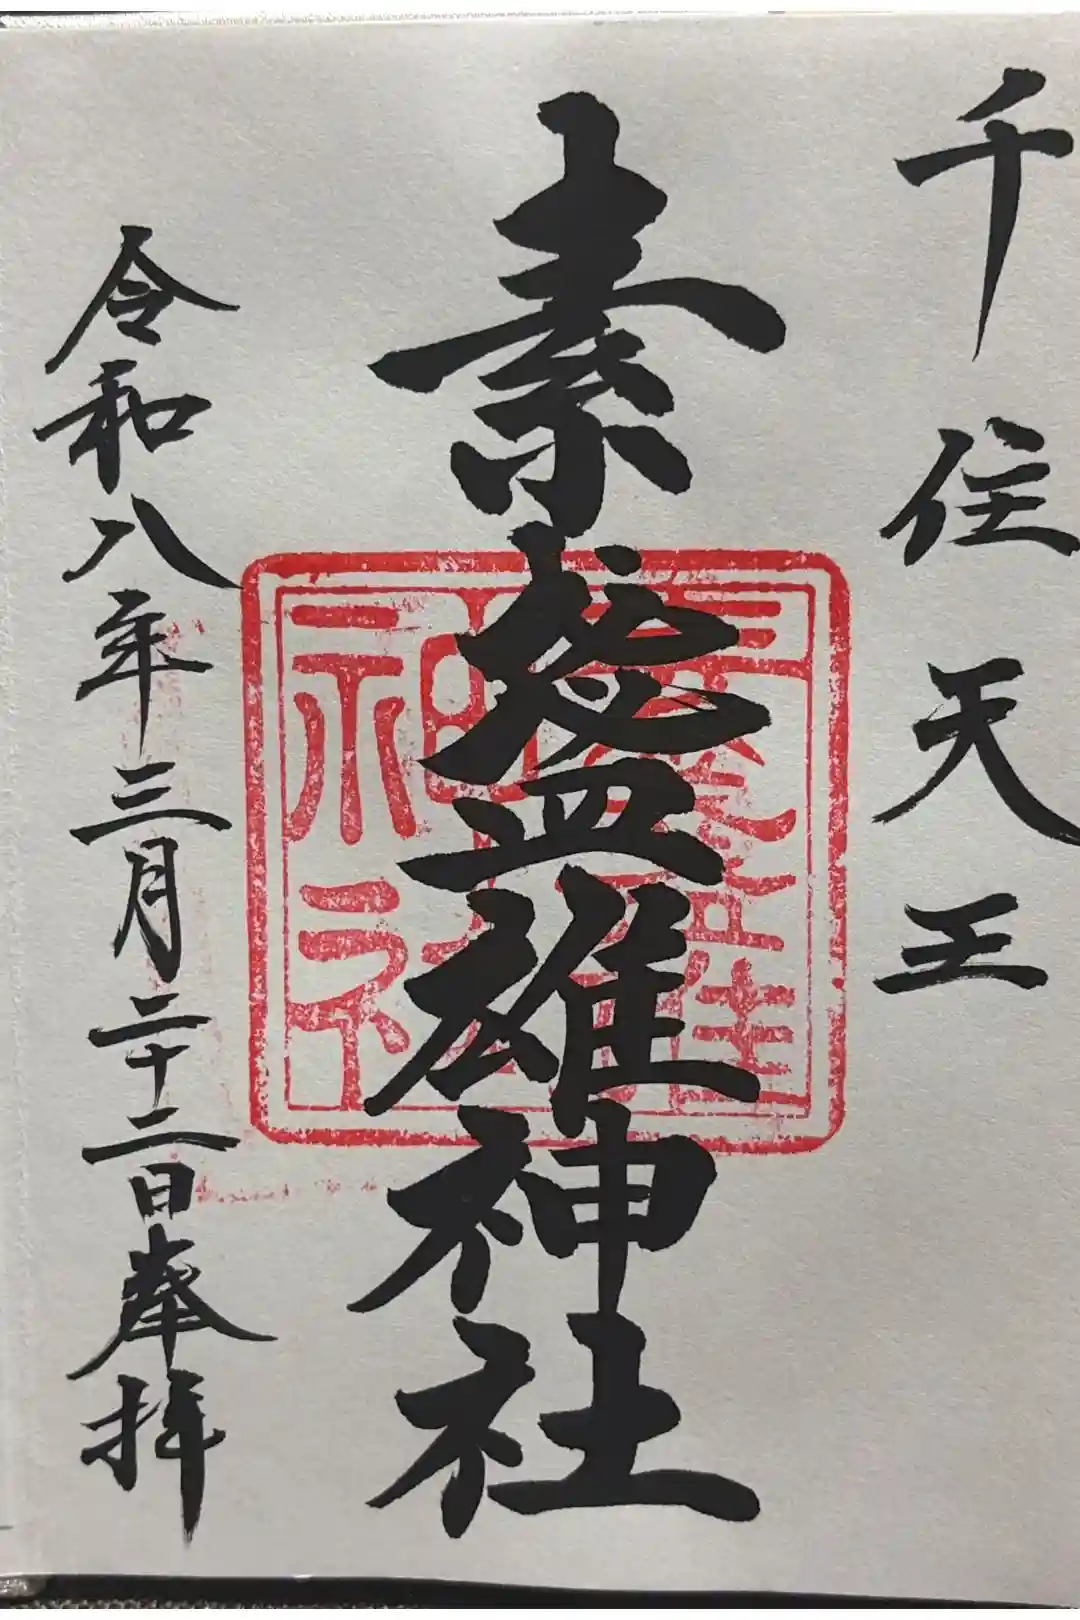 千住天王
素盞雄神社
令和八年三月二十二日奉拝
素盞雄
神社